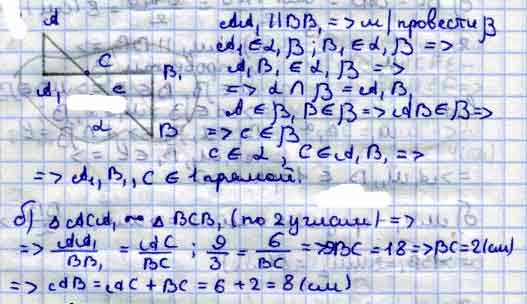 A
C
B₁
A₁
c
α
B
AA₁ || BB₁ => м/провести β
A₁ ∈ α, β ; B₁ ∈ α, β =>
A₁ B₁ ∈ α, β =>
=> α ∩ β = A₁B₁
A ∈ β, B ∈ β => AB ∈ β =>
=> C ∈ β
C ∈ α , C ∈ A₁B₁ =>
=> A₁, B₁, C ∈ 1 прямой.
б) △ ACA₁ ~ △ BCB₁ (по 2 углам) =>
=> AA₁/BB₁ = AC/BC ; 9/3 = 6/BC => 9BC = 18 => BC = 2 (см)
=> AB = AC + BC = 6 + 2 = 8 (см)